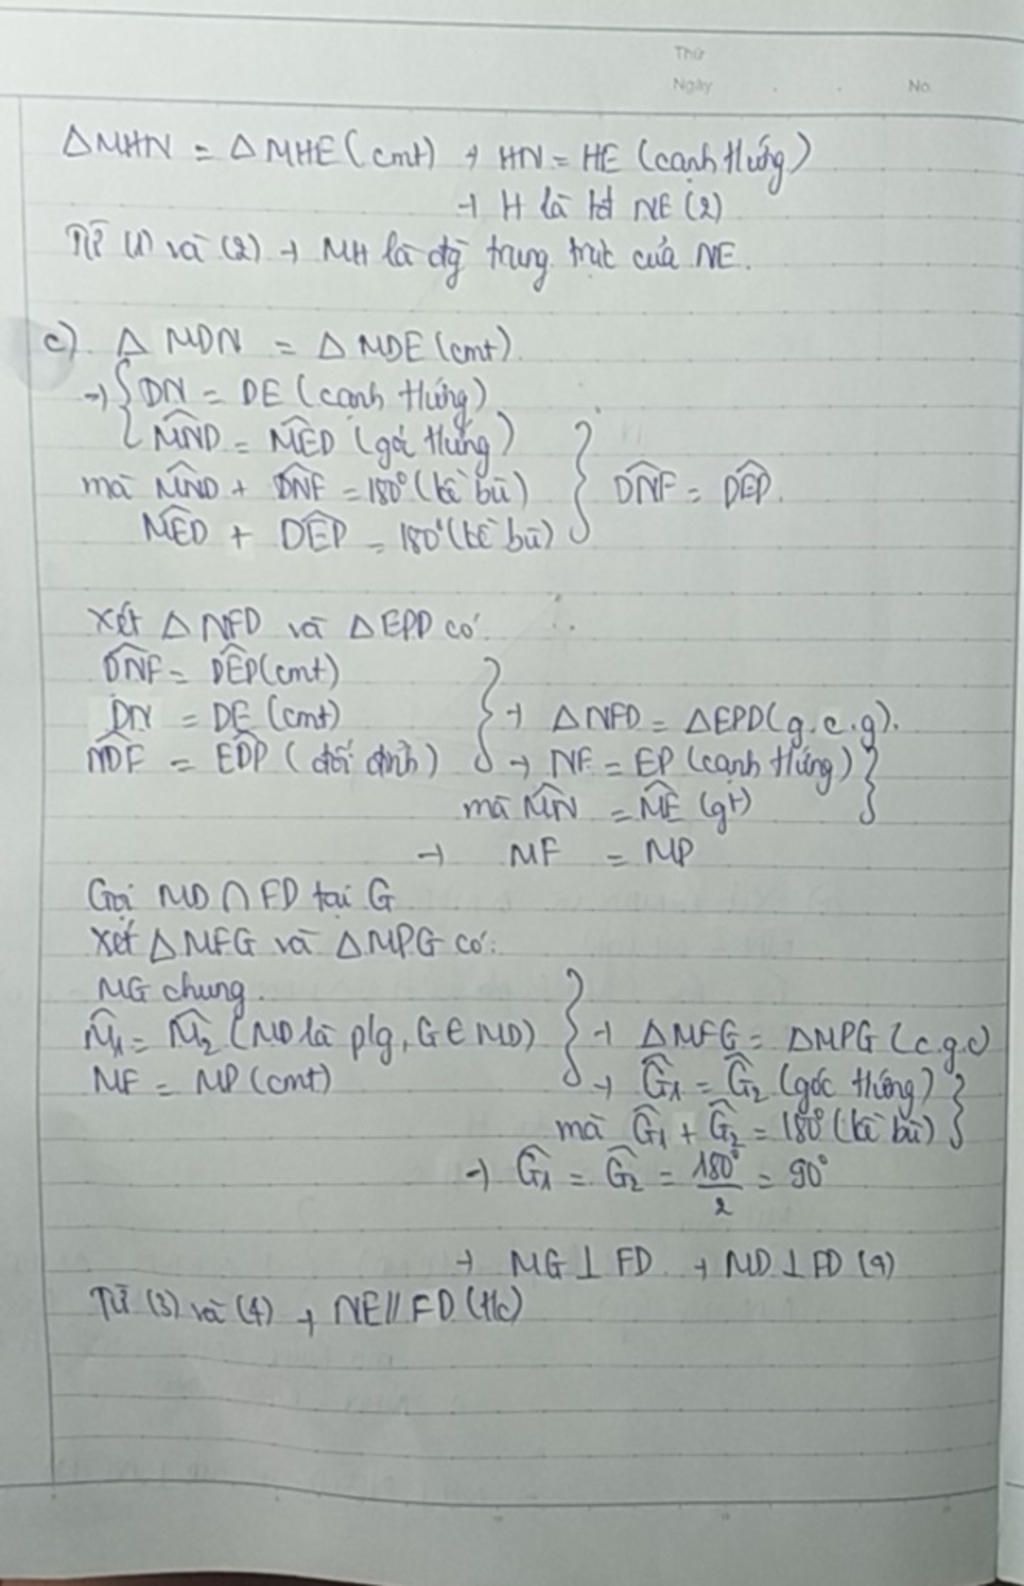 Thứ
Ngày . . No.
ΔMHN = ΔMHE (cmt) → HN = HE (cạnh tứứng)
→ H là tđ NE (2)
Từ (1) và (2) → MH là đg trung trực của NE.
c) Δ MDN = Δ MDE (cmt).
→ { DN = DE (cạnh tứng)
{ \widehat{MND} = \widehat{MED} (góc tứng)
mà \widehat{MND} + \widehat{DNF} = 180° (kề bù) } \widehat{DNF} = \widehat{DEP}.
\widehat{MED} + \widehat{DEP} = 180° (kề bù)
Xét Δ NFD và Δ EPD có:
\widehat{DNF} = \widehat{DEP} (cmt)
DN = DE (cmt) } → ΔNFD = ΔEPD (g.c.g).
\widehat{NDF} = \widehat{EDP} (đối đỉnh) → NF = EP (cạnh tứng) }
mà \widehat{MN} = \widehat{ME} (gt)
→ MF = MP
Gọi MD ∩ FD tại G
Xét Δ MFG và Δ MPG có:
MG chung.
\widehat{M_1} = \widehat{M_2} (MD là p/g, G ∈ MD) } → ΔMFG = ΔMPG (c.g.c)
MF = MP (cmt) → \widehat{G_1} = \widehat{G_2} (góc tứng) }
mà \widehat{G_1} + \widehat{G_2} = 180° (kề bù)
→ \widehat{G_1} = \widehat{G_2} = \frac{180°}{2} = 90°
→ MG ⊥ FD → MD ⊥ FD (4)
Từ (3) và (4) → NE // FD (t/c)